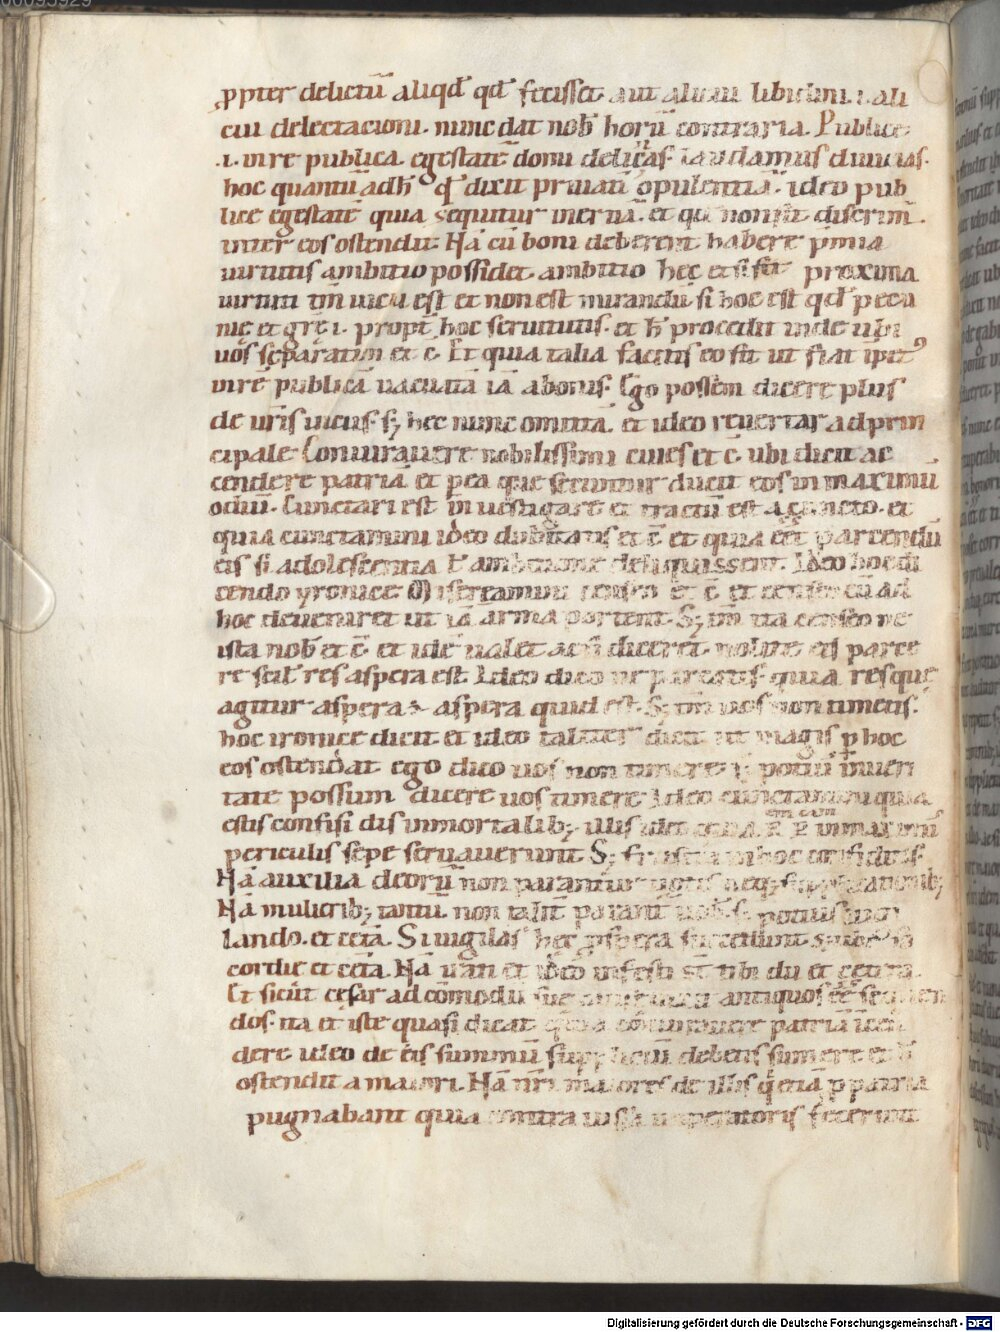 00095929
ꝓpter delictū aliqđ qđ fecisset aut alicui libidini .i. ali
cui delectacioni. nunc dat nob̄ horū contraria. Publice
.i. in re publica. egestatē domi delicias. laudamus diuicias.
hoc quantū adh̄ qđ dixit priuatī opulentiā. ideo pub
lice egestatē quia sequitur inertiā. et qđ non sit discrim̄.
inter eos ostendit. Nā cū boni deberent habere p̄mia
uirtutis ambitio possidet. ambitio hec etsi sit proxima
uirtuti tm̄ uiciū est et non est mirandū si hoc est qđ pecu
nię et grę .i. propt̄ hoc seruitutis. et h̄ procedit inde ubi
uos separatim et c̄. Et quia talia facitis eo fit ut fiat ipet᷒
in rē publicā uacuatā iā a bonis. Ego possem dicere plus
de uris uiciis. sꝫ hec nunc omittā. et ideo reuertar ad prin
cipale. Coniurauere nobilissimi ciues et c̄. ubi dicit ac
cendere patriā. et p ea que secuntur ducit eos in maximū
odiū. Cunctari est inuestigare et tractū est a cuncto. et
quia cunctamini ideo dubitatis et c̄. et quia eēt parcendū
eis si adolescentia ł ambitione deliquissent. Ideo hoc di
cendo yronice. Misereamini censeo et c̄. et censeo cū ad
hoc deueniret ut iā arma portent. Sꝫ tm̄ ita censeo ne
ista nob̄ et c̄. et idē ualet ac si diceret. nolite eis parce
re scil̄ res aspera est. Ideo dico ne parcatis. quia res que
agitur aspera ē. aspera quid est. Sꝫ tm̄ uos non timetis.
hoc ironice dicit et ideo taliter dicit ut magis p hoc
eos ostendat. ego dico uos non timere. sꝫ potiū in ueri
tate possum dicere uos timere. Ideo cunctamini quia
estis confisi dis inmortalibꝫ. illis
periculis sepe seruauerunt. Sꝫ frustra in hoc confiditis.
Nā auxilia deorū non parantur uotis neqꝫ supplicationibꝫ
Nā mulieribꝫ tantū. non talit̄ parant̄ uob̄. sꝫ potius uigi
lando. et cetā. Si uigilas hec prospera succedunt.
cordie et cetā. Nā irati et ideo infesti st̄ tibi dii et cetera.
Et sicut cesar ad comodū sue antiquos eēt sequen
dos. ita et iste quasi dicat. quia coniurauere patriā incen
dere ideo de eis summū suppliciū debetis sumere et h̄
ostendit a maiori. Nā nr̄i maiores de illis q̇ etiā p patria
pugnabant quia contra iussa imperatoris fecerunt
Digitalisierung gefördert durch die Deutsche Forschungsgemeinschaft - DFG